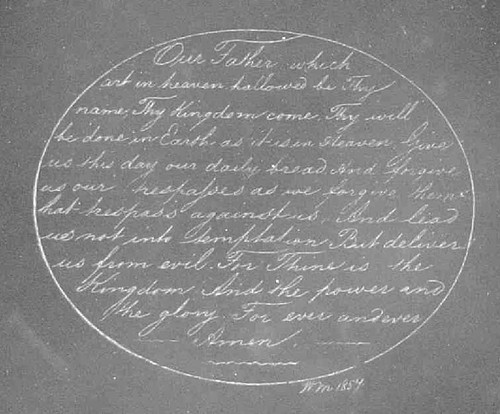 Our Father which
art in heaven hallowed be Thy
name, Thy Kingdom come, Thy will
be done in Earth as it is in Heaven, Give
us this day our daily bread And forgive
us our trespasses as we forgive them
that trespass against us, And lead
us not into temptation But deliver
us from evil. For Thine is the
Kingdom And the power and
the glory For ever and ever
Amen.
W.M. 1854